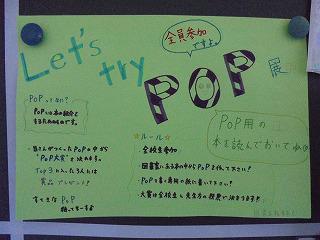 Let's
try
全員参加
ですよ。
POP
展
POPって何?
POPは本の紹介と
するためのものです。
・皆さんがつくったPOPの中から
"POP大賞"を決めます。
Top3に入った3人には
賞品プレゼント!
すてきなPOP
待ってまーす♪
☆ルール☆
・全校生参加
・図書室にある本の中からPOPを作って下さい!
・POPは書く専用の紙に書いて下さい?
・大賞は全校生と先生方の投票で決まります!
POP用の
本を読んでおいてね